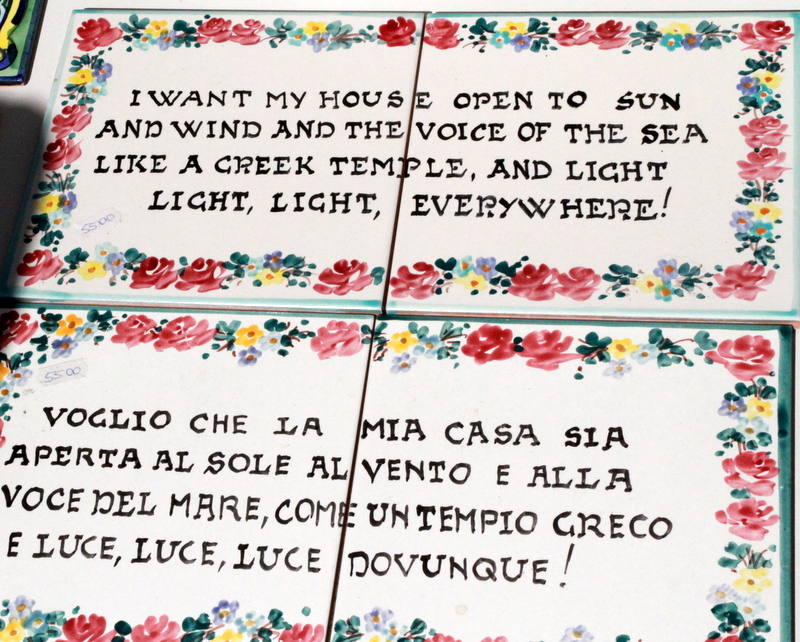 I WANT MY HOUSE OPEN TO SUN
AND WIND AND THE VOICE OF THE SEA
LIKE A GREEK TEMPLE, AND LIGHT
LIGHT, LIGHT, EVERYWHERE!
55.00
55.00
VOGLIO CHE LA MIA CASA SIA
APERTA AL SOLE AL VENTO E ALLA
VOCE DEL MARE, COME UN TEMPIO GRECO
E LUCE, LUCE, LUCE DOVUNQUE!